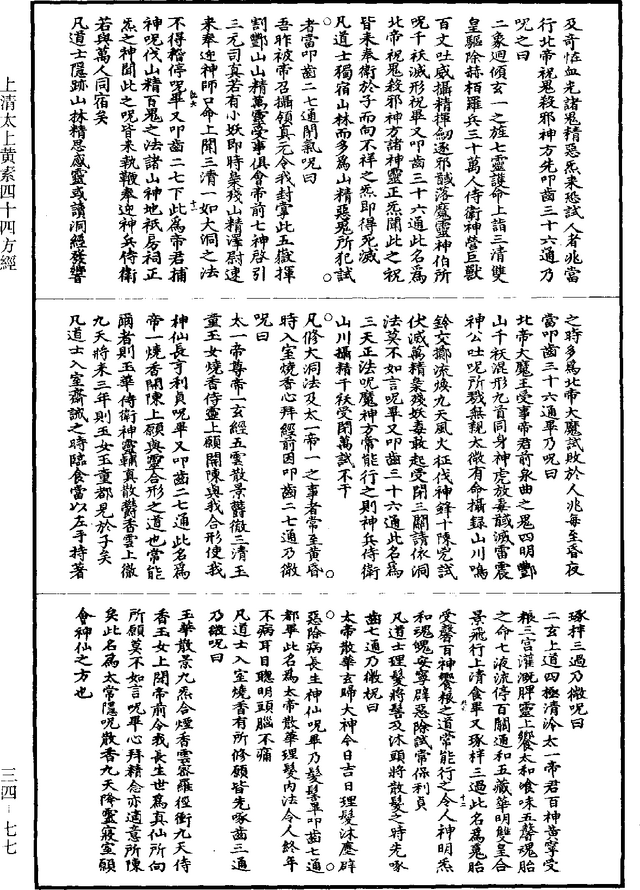 及奇怪血光諸鬼精惡炁來恐試人者兆當
行北帝祝鬼殺邪神方先叩齒三十六通乃
呪之曰
二象迴傾玄一之旌七靈護命上詣三清雙
皇驅除赫柏羅兵三十萬人侍衛神營巨獸
百丈吐威攝精揮劒逐邪馘落魔靈神伯所
呪千袄滅形祝畢又叩齒三十六通此名爲
北帝祝鬼殺邪神方諸神靈正炁聞此之祝
皆来奉衛於子而向不祥之炁即得死滅
凡道士獨宿山林而多爲山精惡鬼所犯試
者當叩齒二七通閉氣呪曰
吾昨被帝召攝領真元令我封掌此五嶽揮
割酆山山精萬靈受事俱會帝前七神啓引
三元司真若有小妖即時梟殘山精澤尉速
來奉迎神師口命上聞三清一如大洞之法
不得暫停呪畢又叩齒二七下此爲帝君捕
神呪伐山精百鬼之法諸山神地祇房祠正
炁之神聞此之呪皆來執鞭奉迎神兵侍衛
若與萬人同宿矣
凡道士隱跡山林精思感靈或讀洞經發響
之時多爲北帝大魔試敗於人兆每至昏夜
當叩齒三十六通畢乃呪曰
北帝大魔王受事帝君前泉曲之鬼四明酆
山千袄混形九首同身神虎放毒馘滅雷震
神公吐呪所戮無親太微有命攝錄山川鳴
鈴交擲流煥九天風火征伐神鋒十陳凭試
伏滅萬精梟殘妖毒敢起受閉三關請依洞
法莫不如言呪畢又叩齒三十六通此名爲
三天正法呪魔神方常能行之則神兵侍衛
山川攝精千袄受閉萬試不干
凡修大洞法及太一帝一之事者常至黃昏
時入室燒香心拜經前因叩齒二七通乃微
呪曰
太一帝尊帝一玄經五雲散景欝徹三清玉
童玉女燒香侍靈上願開陳與我合形使我
神仙長亨利貞呪畢又叩齒二七通此名爲
帝一燒香開陳上願與靈合形之道也常能
爾者則玉華侍衛神靈輔真散欝香雲上徹
九天將未三年則玉女玉童都見於子矣
凡道士入室齋誡之時臨食當以左手持著
琢柈三過乃微呪曰
二玄上道四極清泠太一帝君百神黃寧受
粮三宮灌溉脾靈上饗太和飡味五馨魂胎
之命七液流停百關通和五藏華明雙皇合
景飛行上清食畢又琢柈三過此名爲兎胎
受馨百神饗粮之道常能行之令人神明炁
和魂魄安寧辟惡除試常保利貞
凡道士理髮將髻及沐頭將散髮之時先啄
齒七通乃微祝曰
太帝散華玄歸大神今日吉日理髮沐塵辟
惡除病長生神仙呪畢乃髮髻畢叩齒七通
都畢此名爲太帝散華理髮內法令人終年
不病耳目聰明頭腦不痛
凡道士入室燒香有所修願皆先啄齒三通
乃微呪曰
玉華散景九炁合煙香雲密羅徑衝九天侍
香玉女上聞帝前令我長生世爲真仙所向
所願莫不如言呪畢心拜精念亦適意所陳
矣此名爲太常隱呪散香九天降靈寢室願
會神仙之方也
上清太上黄素四十四方經
三四－七七